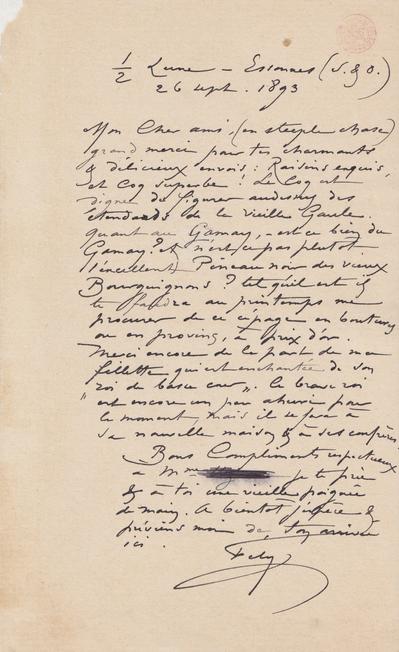 ½ Lune - Essonnes (S. & O.)
26 sept. 1893
Mon Cher ami, (en steeple chase)
grand merci pour tes charmants
& délicieux envois : Raisins exquis,
et Coq superbe ! Le Coq est
digne de figurer au dessus des
étendards de la vieille Gaule.
quant au Gamay, - est ce bien du
Gamay ? et n'est ce pas plutôt
l'excellent Pineau noir des vieux
Bourguignons ? tel qu'il est il
te faudra au printemps me
procurer de ce cépage en boutures
ou en provins, à prix d'or.
Merci encore de la part de ma
fillette qui est enchantée de son
roi de basse cour ". Le brave roi
" est encore un peu ahuri pour
le moment, mais il se fera à
sa nouvelle maison & à ses confrères.
Bons Compliments respectueux
à Mme je te prie
& à toi une vieille poignée
de main. A bientôt j'espère &
préviens moi de ton arrivée
ici.
Fély